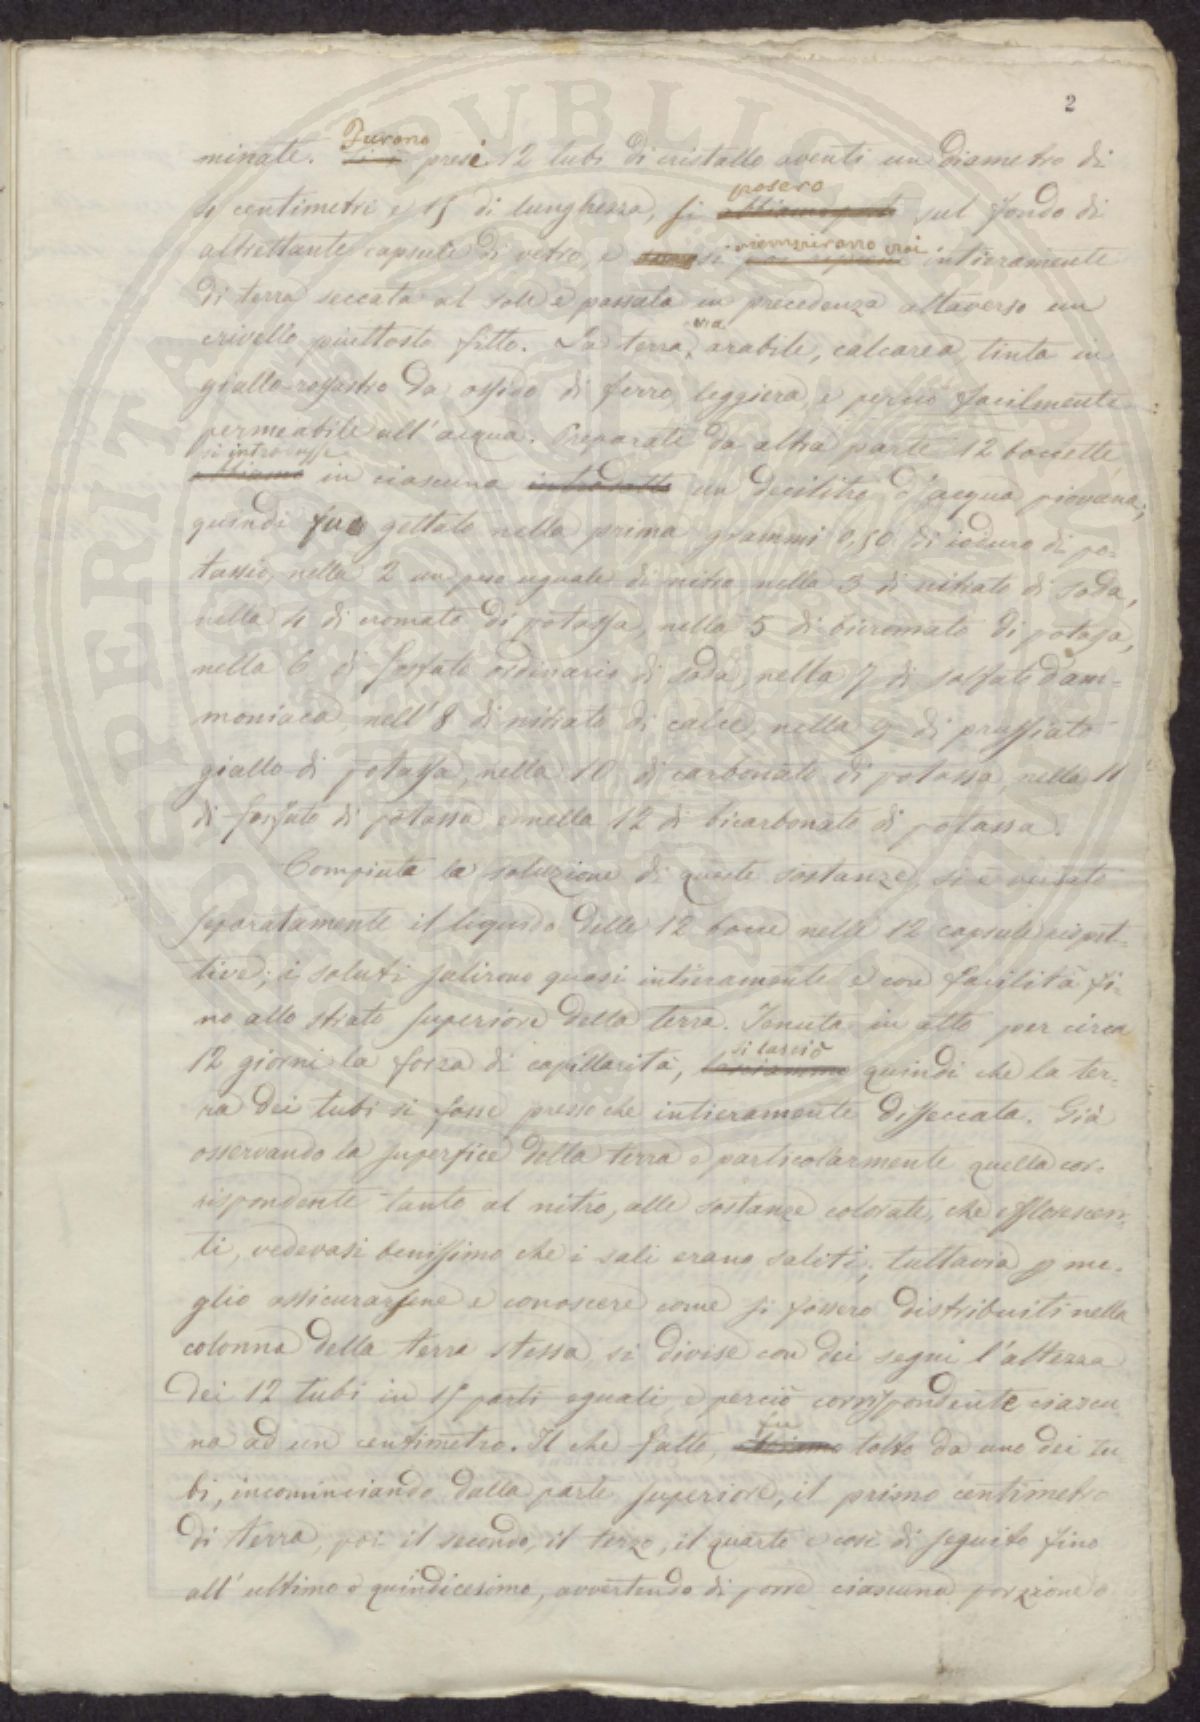 2
minate. Furono presi 12 tubi di cristallo aventi un diametro di
posero
4 centimetri e 15 di lunghezza, si abbiamo posti sul fondo di
riempirono poi
altrettante capsule di vetro, e si intieramente
di terra seccata al sole e passata in precedenza attaverso un
era
crivello piuttosto fitto. La terra, arabile, calcarea, tinta in
giallo-rossastro da ossido di ferro, leggiera, e perciò facilmente
permeabile all'acqua. Preparate da altra parte 12 boccette,
si introdusse
abbiamo in ciascuna introdotto un decilitro d'acqua piovana;
quindi fu gettato nella prima grammi 0,50 di ioduro di po-
tassio, nella 2 un peso uguale di nitro, nella 3 di nitrato di soda,
nella 4 di cromato di potassa, nella 5 di bicromato di potassa,
nella 6 di fosfato ordinario di soda, nella 7 di solfato d'am-
moniaca, nell'8 di nitrato di calce, nella 9 di prussiato
giallo di potassa, nella 10 di carbonato di potassa, nella 11
di fosfato di potassa e nella 12 di bicarbonato di potassa.
Compiuta la soluzione di queste sostanze, si è versato
separatamente il liquido delle 12 bocce nelle 12 capsule rispet-
tive; i soluti salirono quasi intieramente e con facilità fi-
no allo strato superiore della terra. Tenuta in atto per circa
si lasciò
12 giorni la forza di capillarità, lasciammo quindi che la ter-
ra dei tubi si fosse pressoché intieramente disseccata. Già
osservando la superfice della terra e particolarmente quella cor-
rispondente tanto al nitro, alle sostanze colorate, che efflorescen-
ti, vedevasi benissimo che i sali erano saliti; tuttavia p me-
glio assicurarsene e conoscere come si fossero distribuiti nella
colonna della terra stessa, si divise con dei segni l'altezza
dei 12 tubi in 15 parti eguali e perciò corrispondente ciascu-
fu
na ad un centimetro. Il che fatto, abbiamo tolto da uno dei tu-
bi, incominciando dalla parte superiore, il primo centimetro
di terra, poi il secondo, il terzo, il quarto e così di seguito fino
all'ultimo o quindicesimo, avvertendo di porre ciascuna porzione